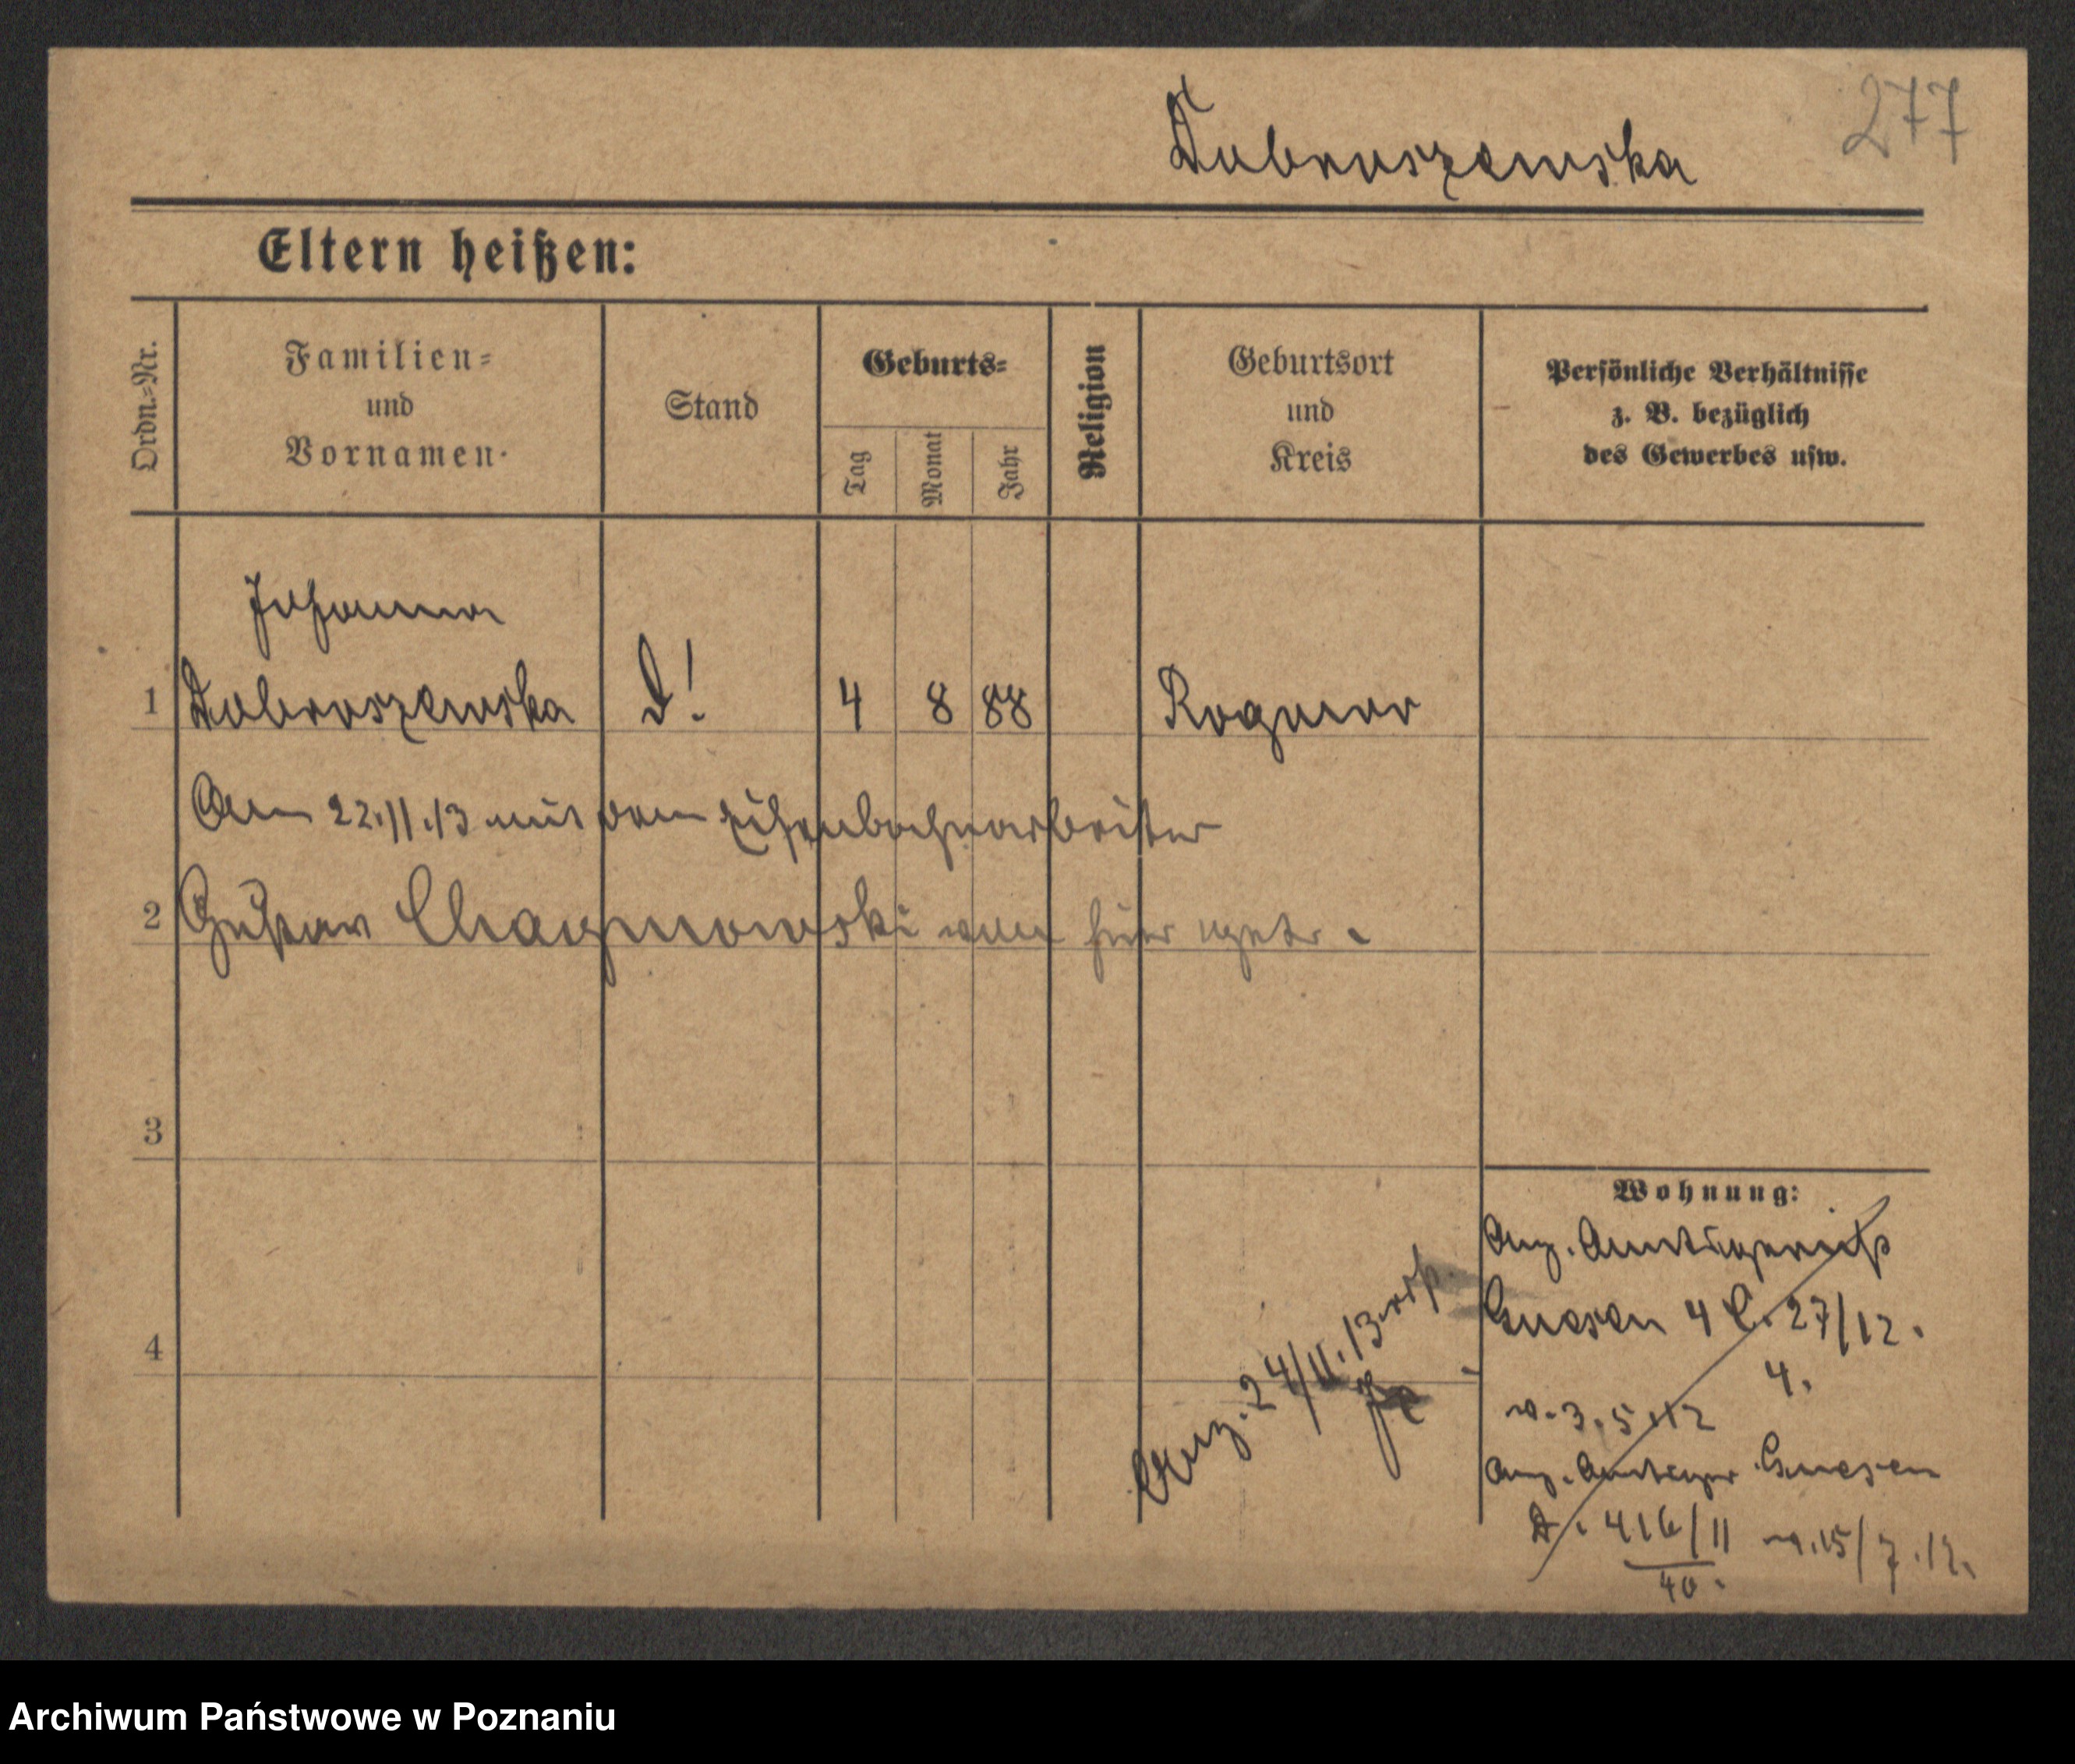 277
Dobroszewska
Eltern heißen:
Ordn.-Nr.
Familien-
und
Vornamen.
Stand
Geburts-
Tag
Monat
Jahr
Religion
Geburtsort
und
Kreis
Persönliche Verhältnisse
z. B. bezüglich
des Gewerbes usw.
Johanna
1 Dobroszewska D! 4 8 88
Am 22.11.13 mit dem Eisenbahnarbeiter
2 Gustav von hier
3
4
Wohnung:
Anz. Amtsgericht
Gnesen 4 C. 27/12.
4.
v. 3.5.12
Anz. Amtsger Gnesen
D. 416/11 v. 15/7.12.
40.
Anz. 24/11.13
Archiwum Państwowe w Poznaniu